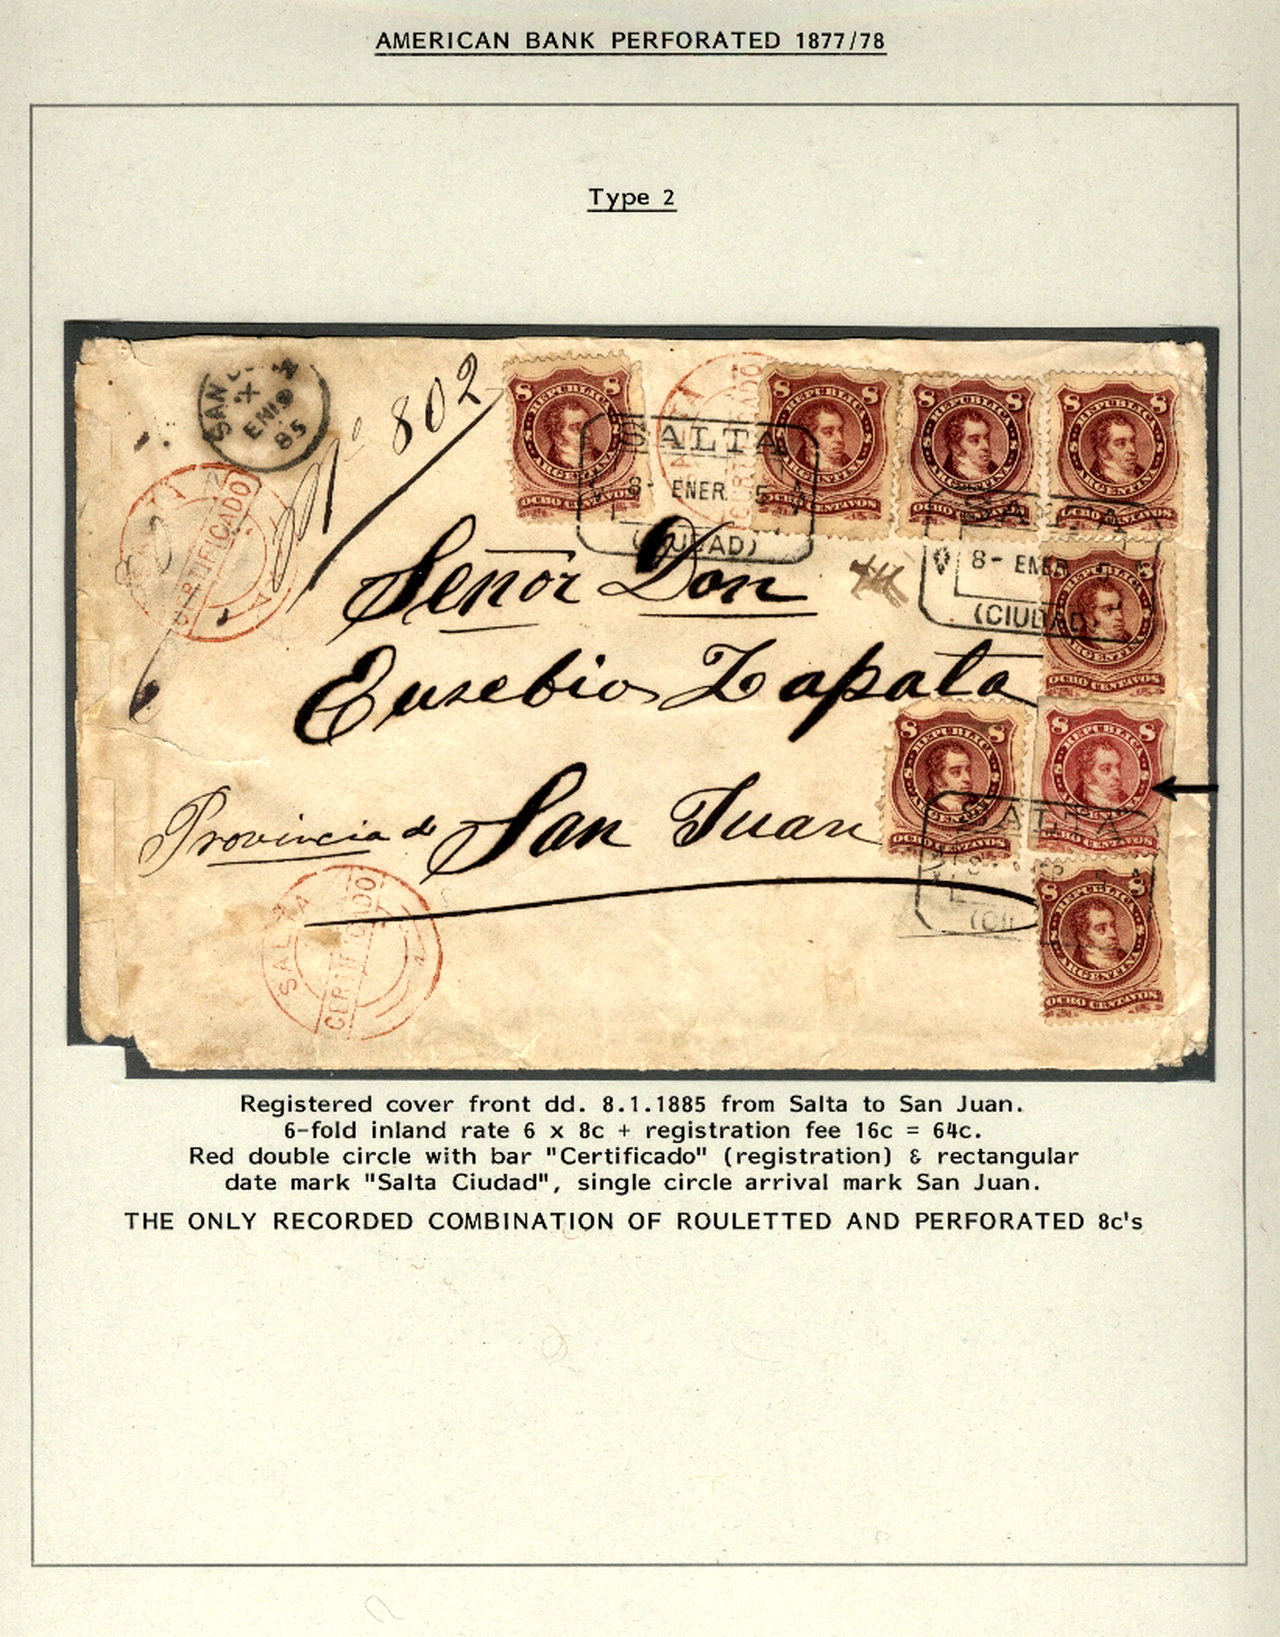 AMERICAN BANK PERFORATED 1877/78
Type 2
SAN
EN 19
85
Nº 802
CERTIFICADO
SALTA
8- ENER 85
(CIUDAD)
8- ENER
(CIUDAD)
REPUBLICA
ARGENTINA
OCHO CENTAVOS
Señor Don
Eusebio Zapata
Provincia de San Juan
SALTA
CERTIFICADO
SALTA
Registered cover front dd. 8.1.1885 from Salta to San Juan.
6-fold inland rate 6 x 8c + registration fee 16c = 64c.
Red double circle with bar "Certificado" (registration) & rectangular
date mark "Salta Ciudad", single circle arrival mark San Juan.
THE ONLY RECORDED COMBINATION OF ROULETTED AND PERFORATED 8c's